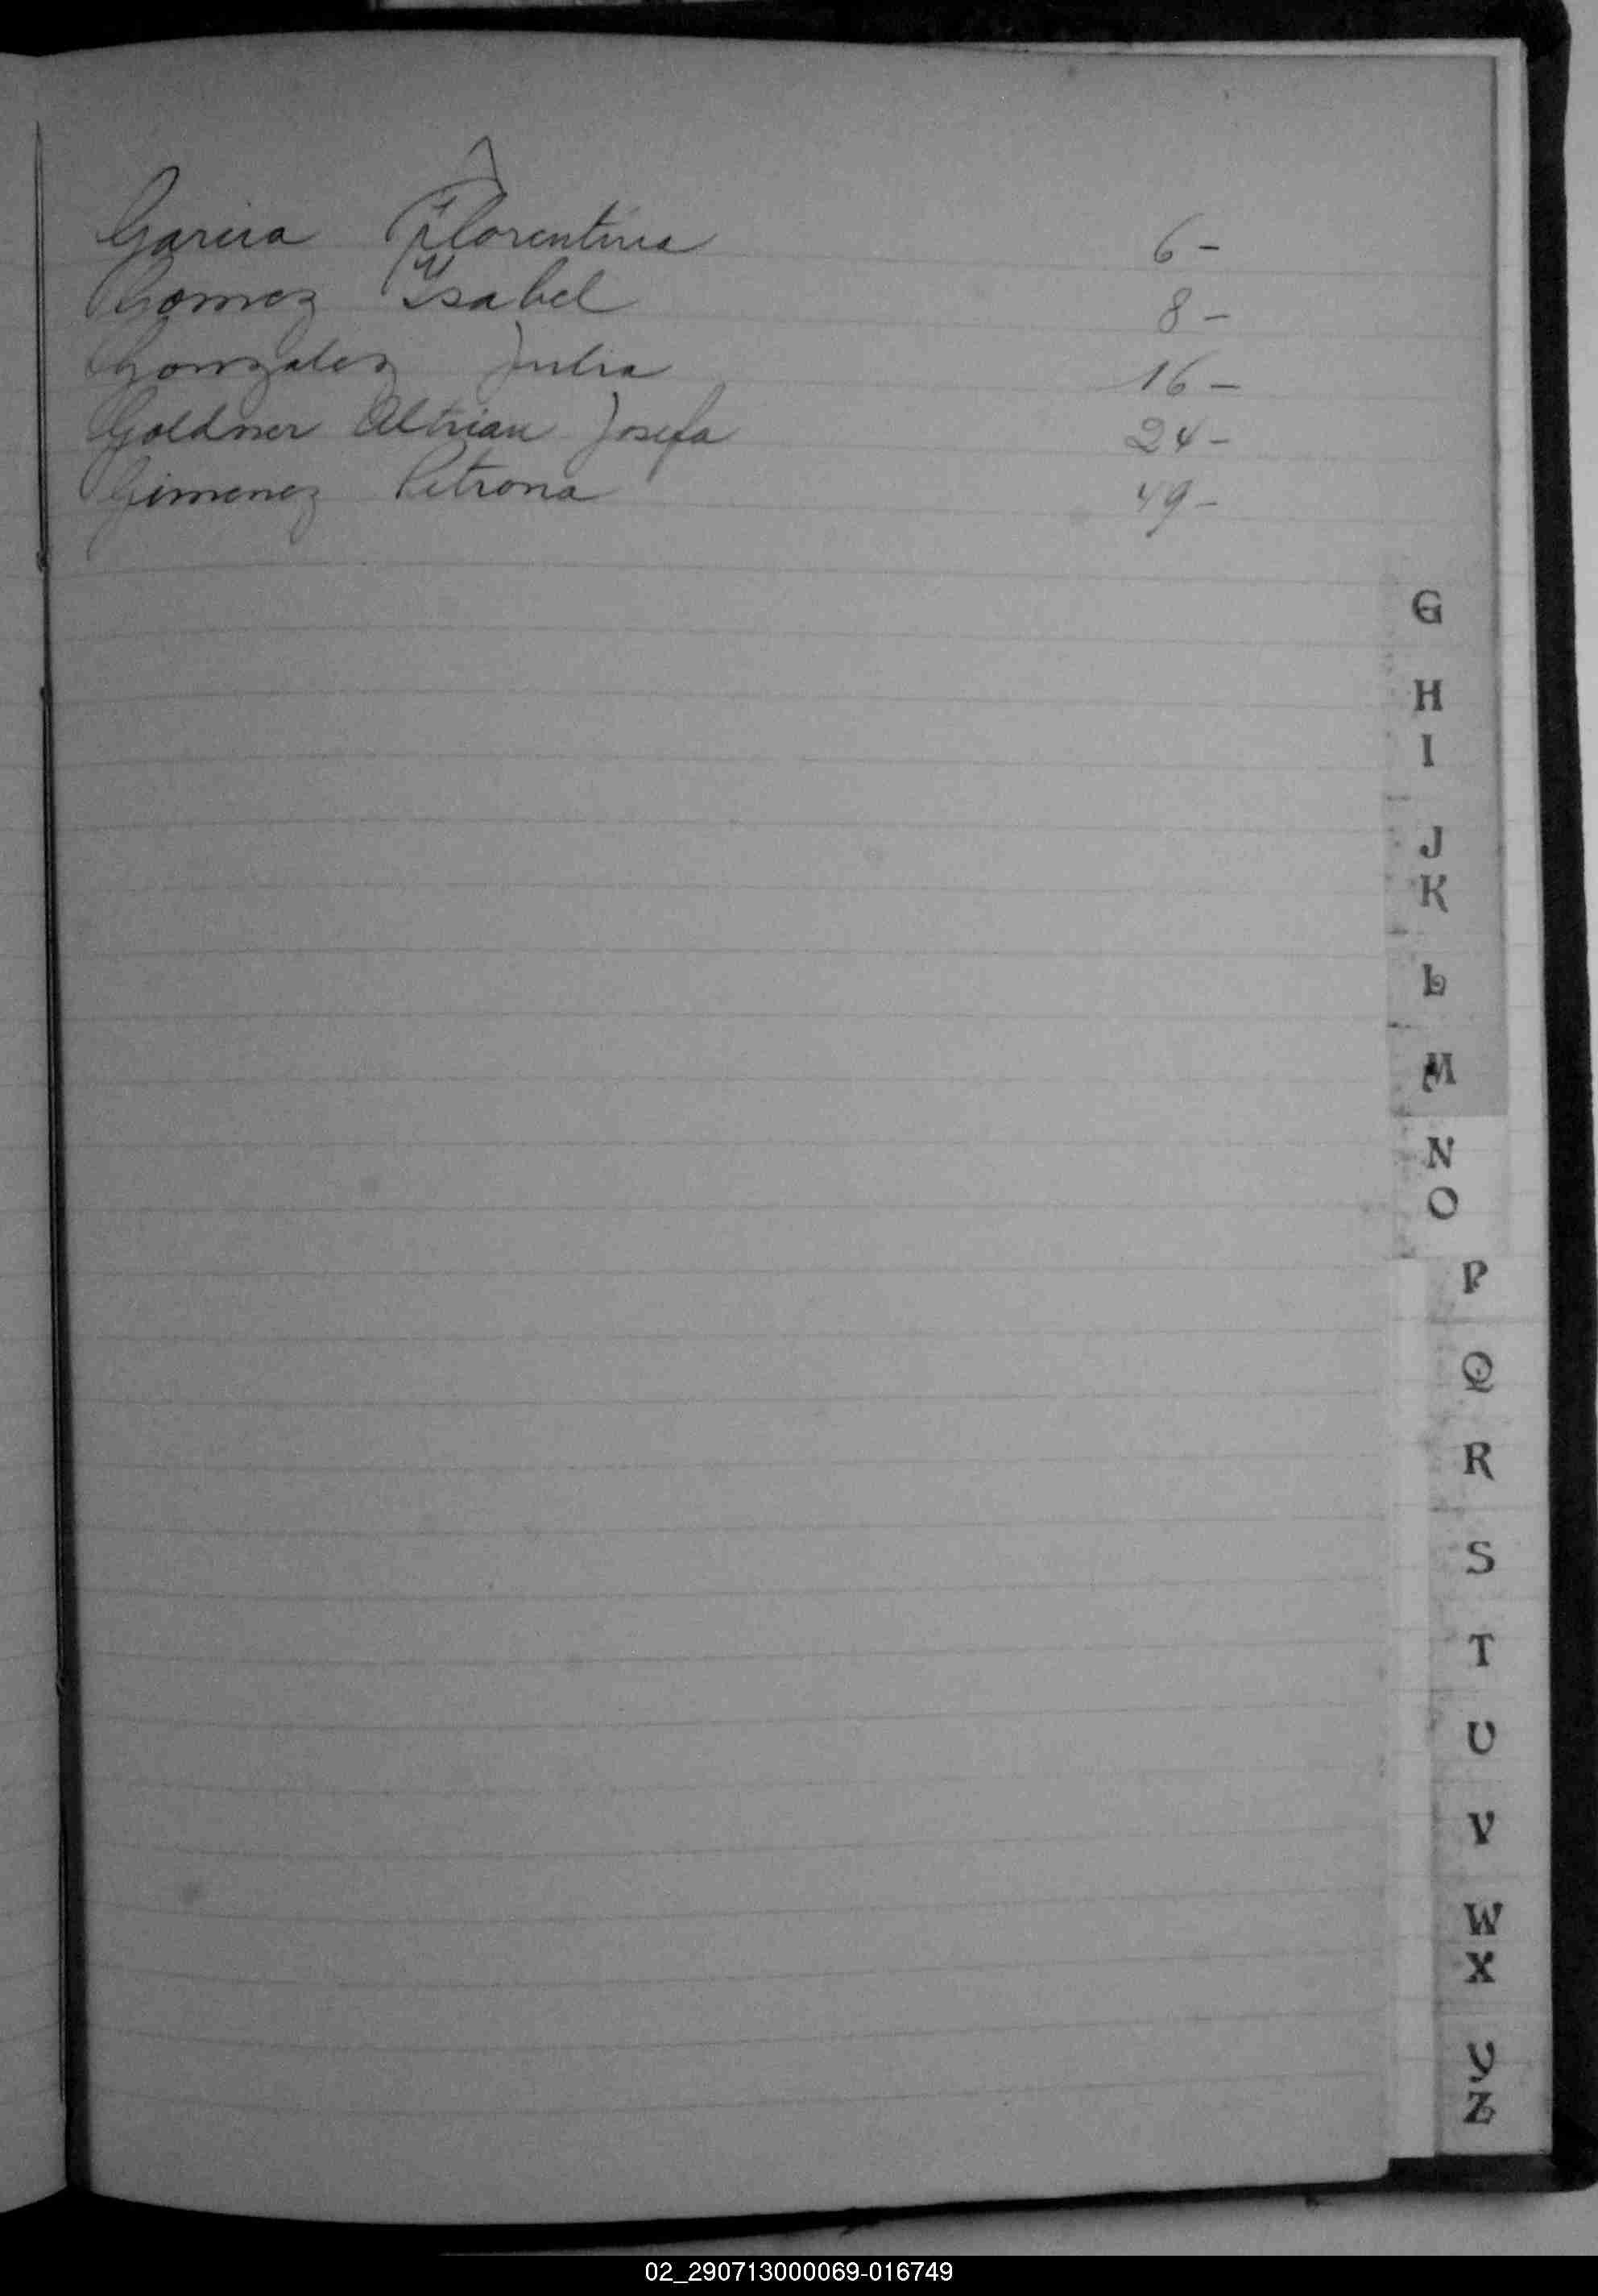 Garcia Florentina 6 -
Gomez Ysabel 8 -
Gonzalez Julia 16 -
Goldner Altrian Josefa 24 -
Gimenez Petrona 49 -
G
H
I
J
K
L
M
N
O
P
Q
R
S
T
U
V
W
X
Y
Z
02_290713000069-016749